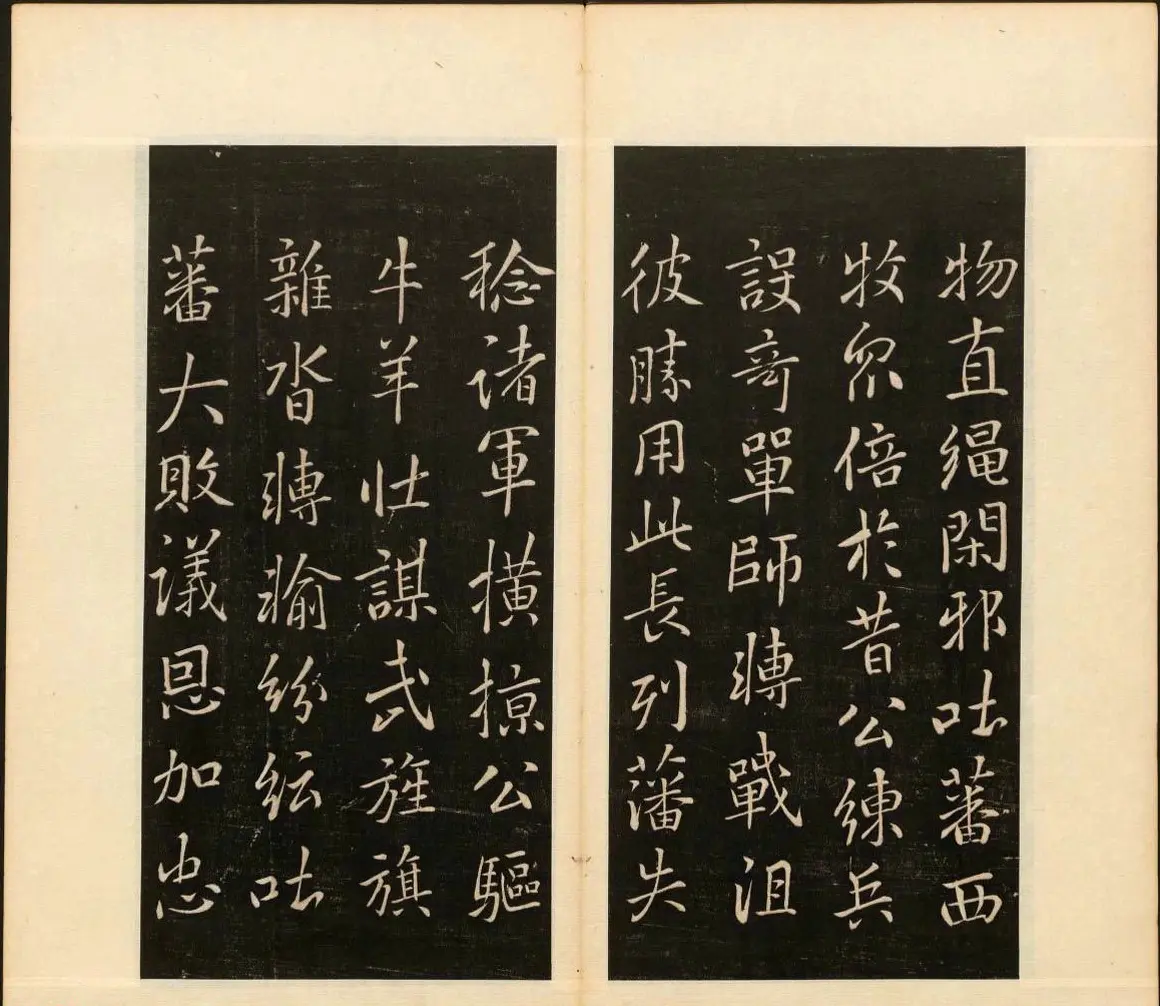 物直縄閑邪吐蕃西
牧眾倍於昔公練兵
設奇單師轉戰沮
彼勝用此長列藩失
稔諸軍橫掠公驅
牛羊壯謀武旌旗
雜沓轉輸紛紜吐
蕃大敗議恩加忠